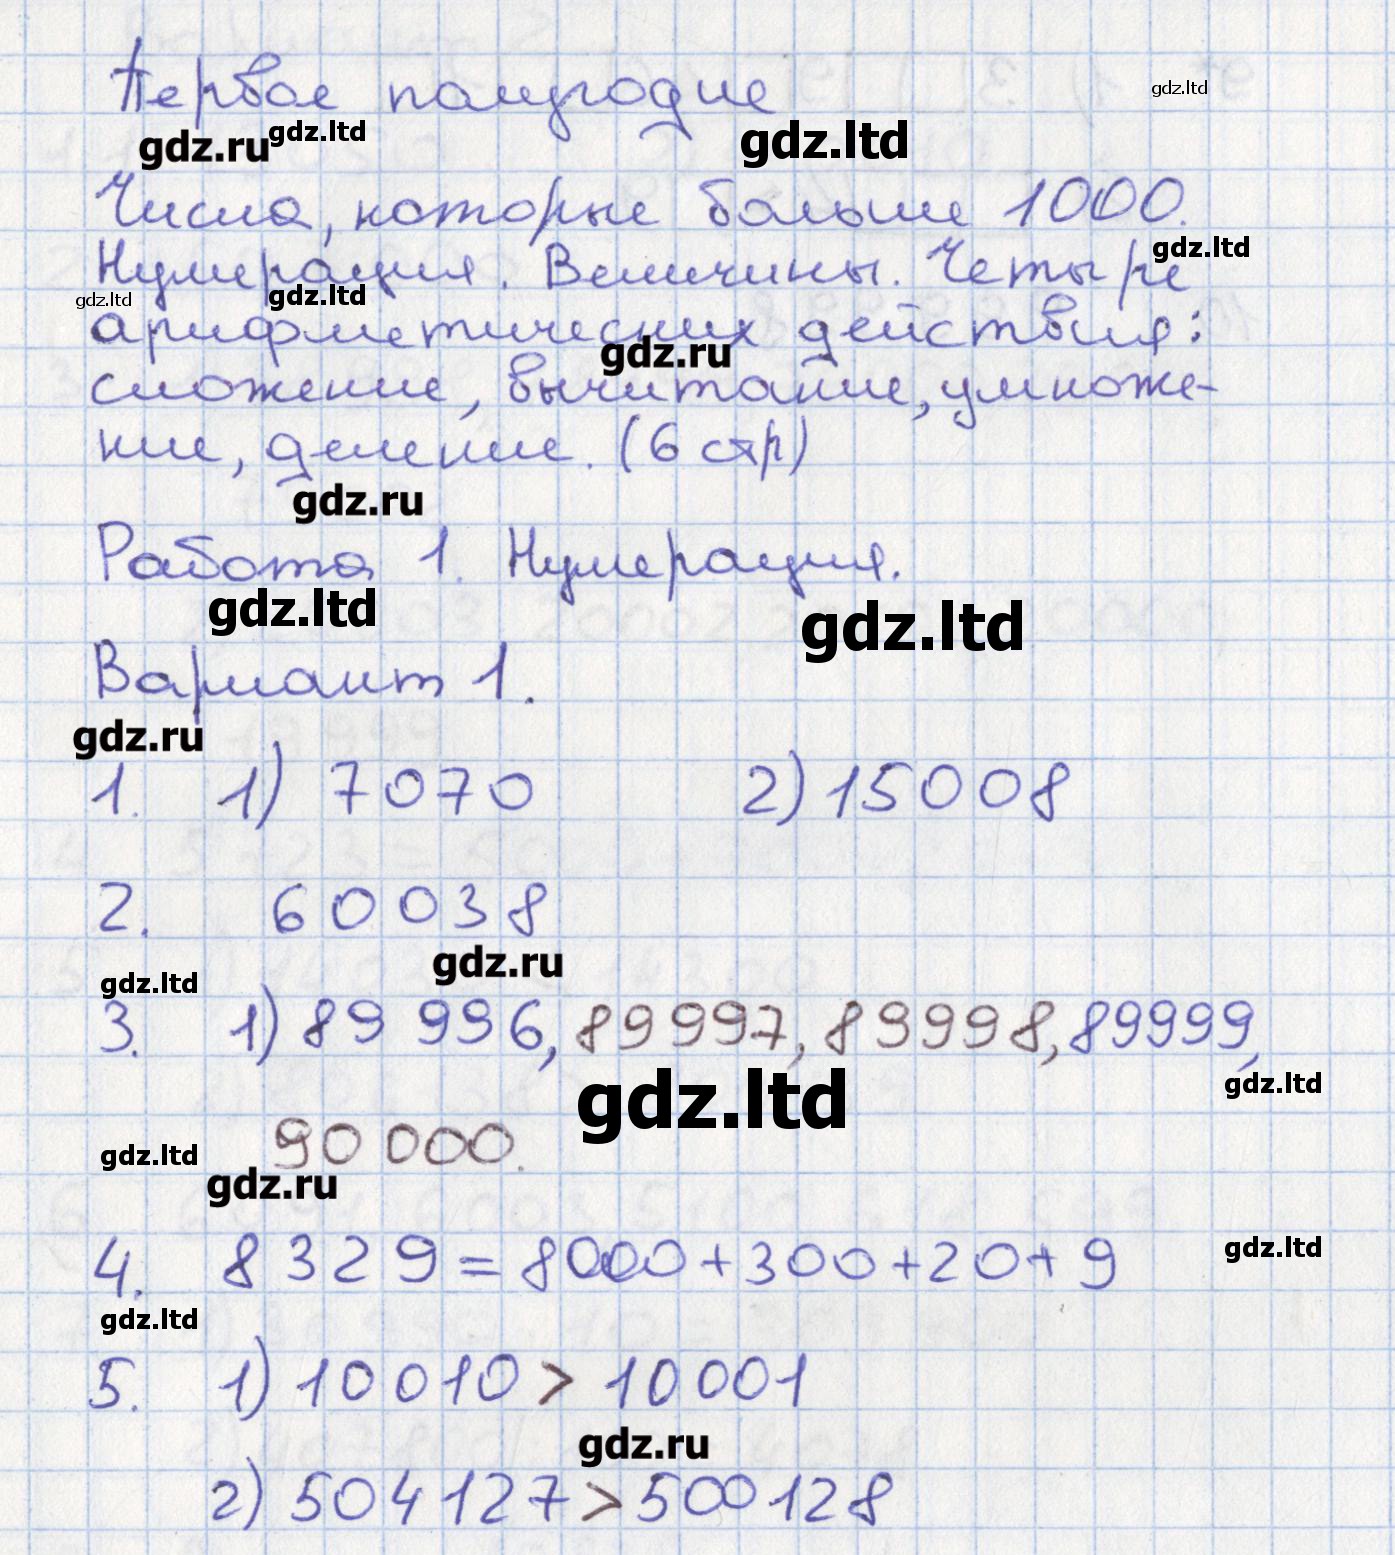 Первое полугодие
gdz.ltd
gdz.ru gdz.ltd gdz.ltd
Числа, которые больше 1000.
gdz.ltd
Нумерация. Величины. Четыре
gdz.ltd gdz.ltd
арифметических действия:
gdz.ru
сложение, вычитание, умноже-
ние, деление. (6 стр)
gdz.ru
Работа 1. Нумерация.
gdz.ltd gdz.ltd
Вариант 1.
gdz.ru
1. 1) 7070 2) 15008
2. 60038
gdz.ltd gdz.ru
3. 1) 89 996, 89997, 89998, 89999,
gdz.ltd gdz.ltd
90 000.
gdz.ltd gdz.ru
4. 8329 = 8000 + 300 + 20 + 9
gdz.ltd
gdz.ltd
5. 1) 10010 > 10001
gdz.ru
2) 504127 > 500128